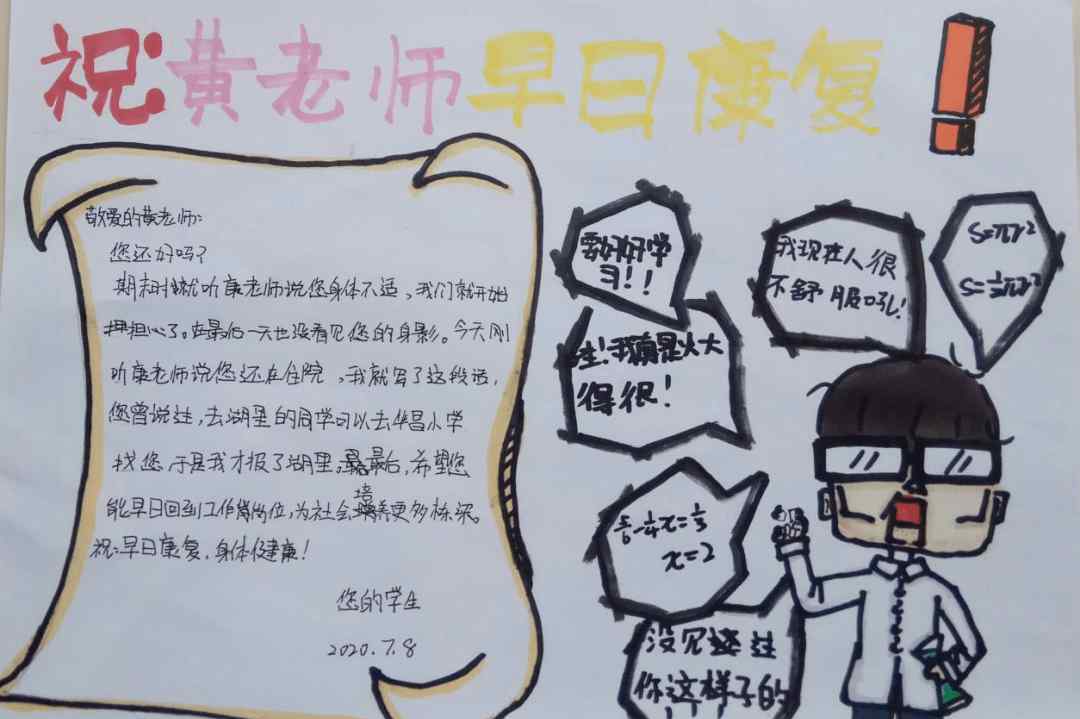 祝:黄老师早日康复!
敬爱的黄老师:
您还好吗?
期末时候就听康老师说您身体不适,我们就开始
担心了。在最后一天也没看见您的身影。今天刚
听康老师说您还在住院,我就写了这段话,
您曾说过,去湖里的同学可以去华昌小学
找您,于是我才报了湖里。最后,希望您
能早日回到工作岗位,为社会培养更多栋梁。
祝:早日康复,身体健康!
您的学生
2020.7.8
要好好学
习!!
生!我真是火大
得很!
我现在人很
不舒服吼!
S=πr²
S=½πr²
x=2
没见过
你这样子的